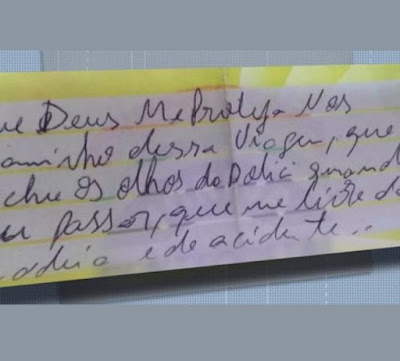 ue Deus Me Proteja Nos
caminho dessa Viagem, que
eche os olhos da Polici quand
eu passar, que me livre da
cadeia e de acidente...